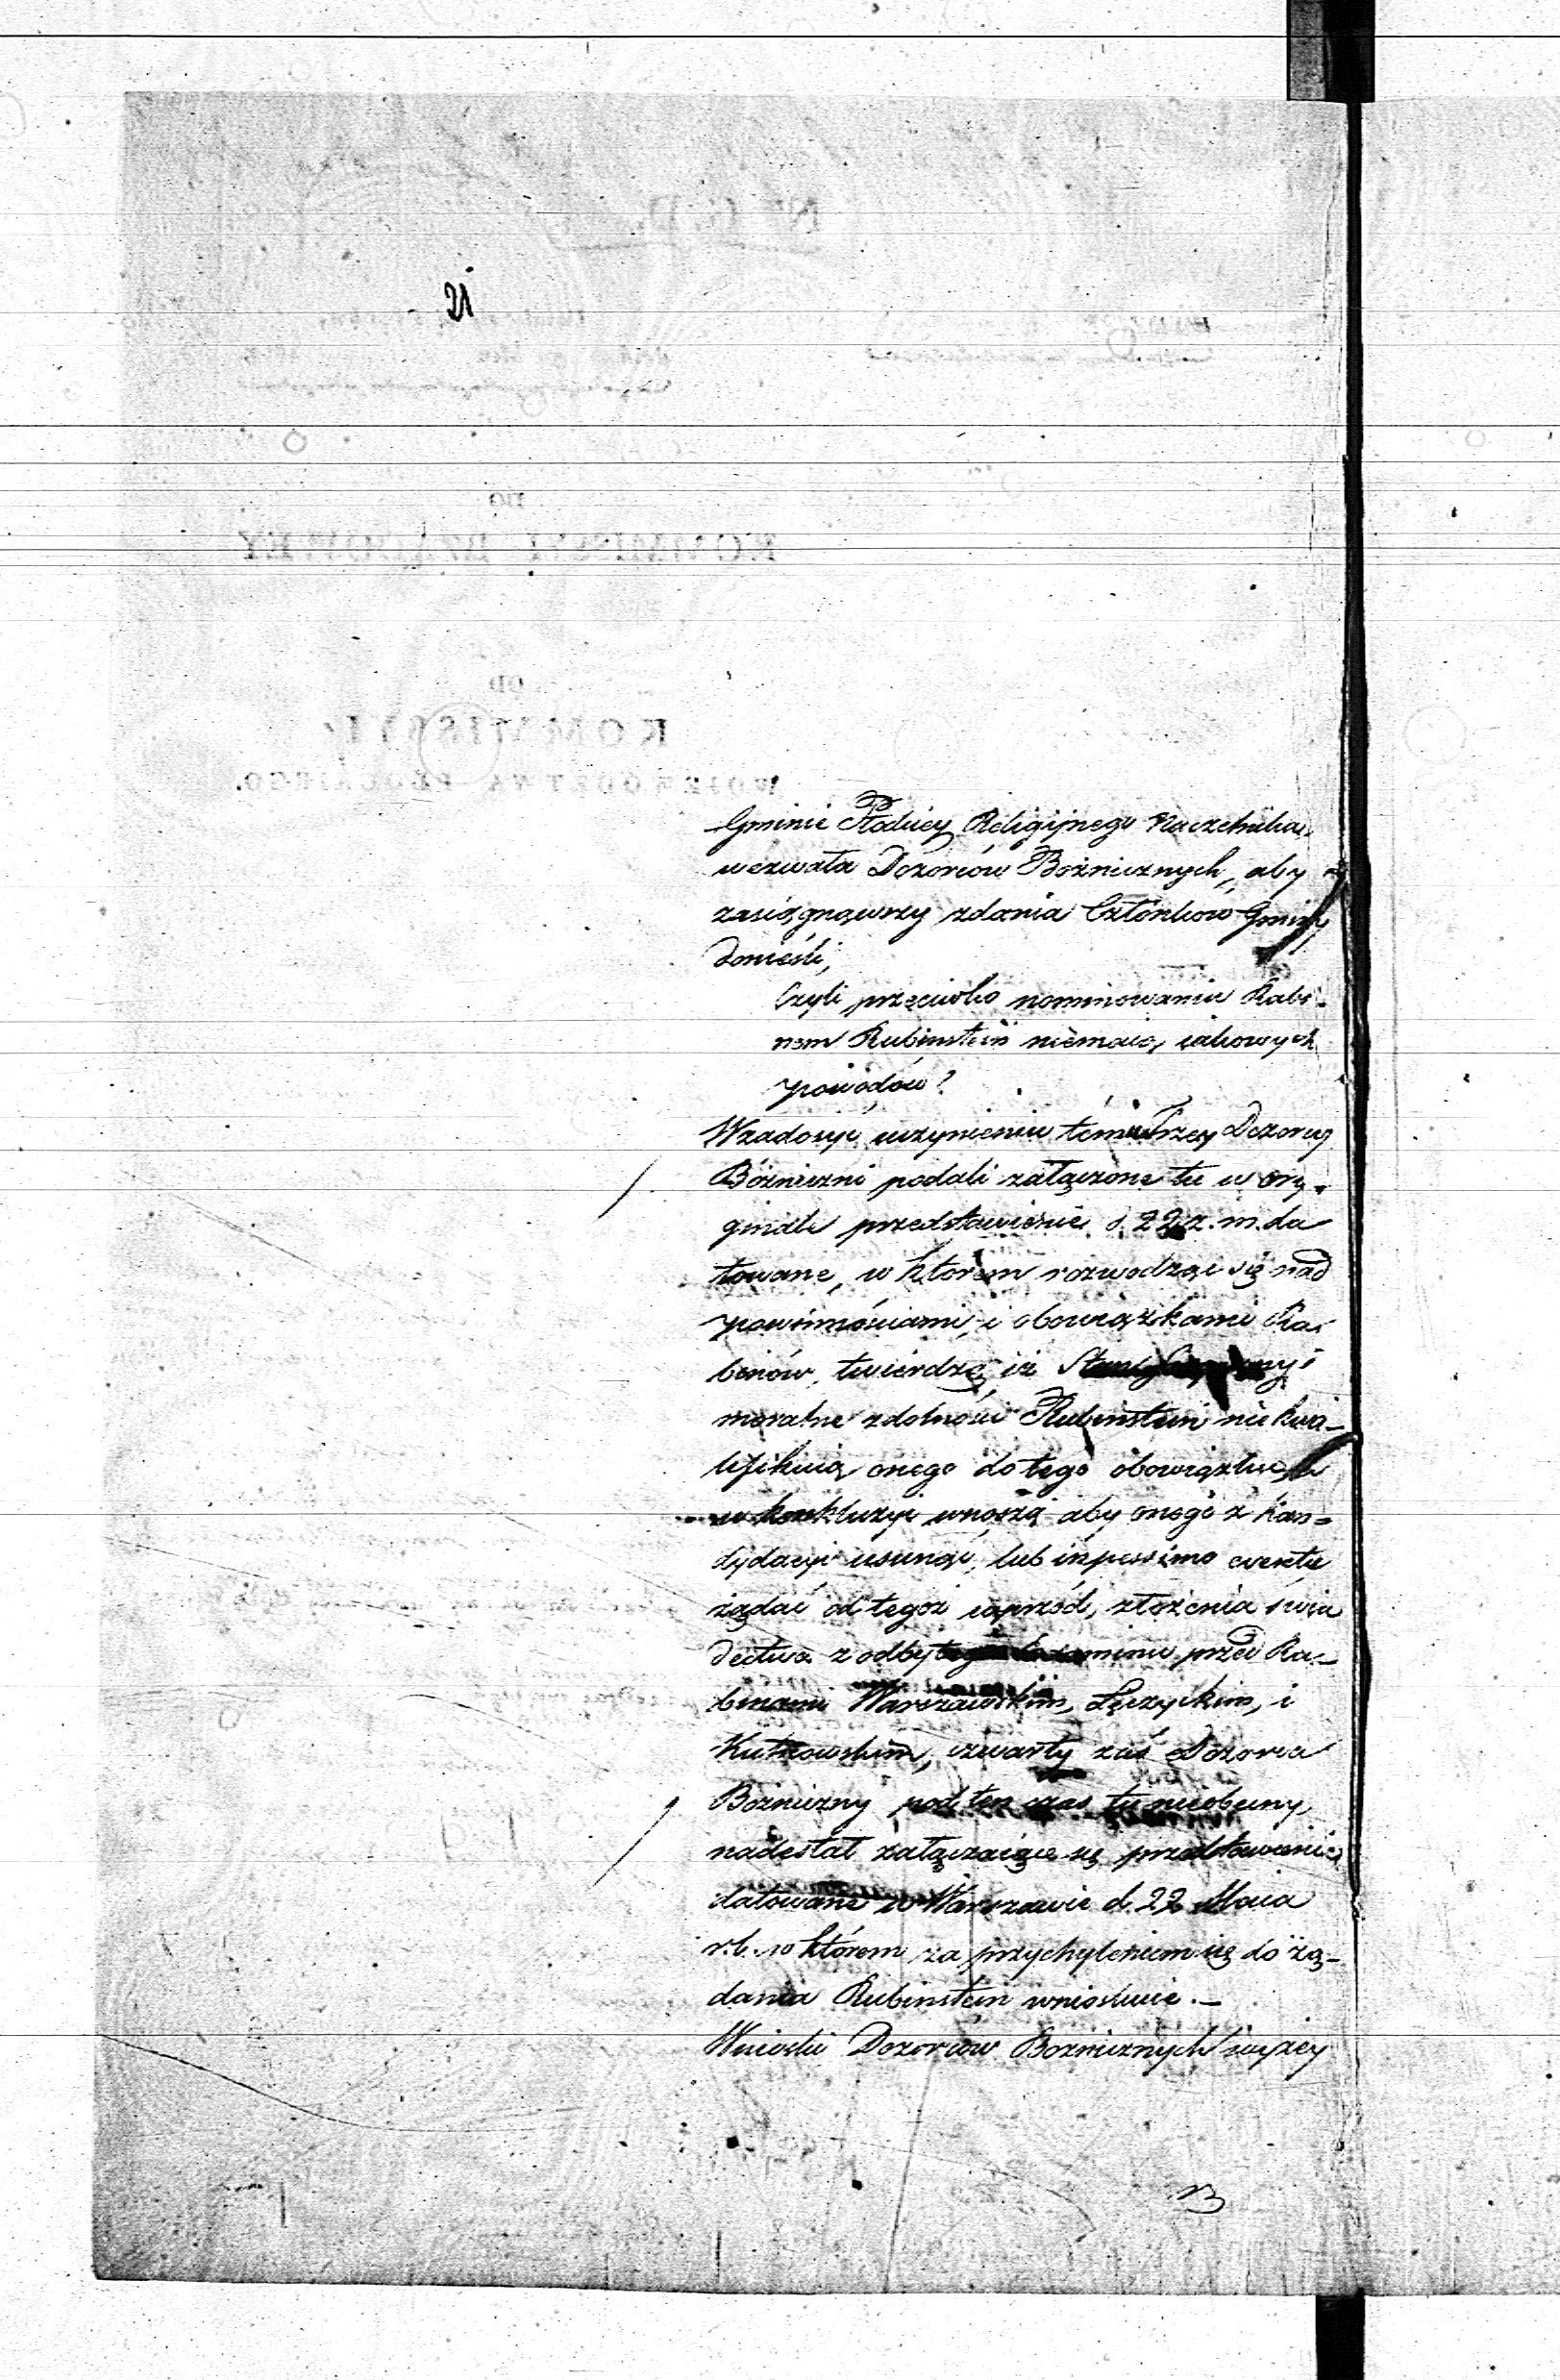 21
Gminie Płockiey Religijnego Naczelnika,
wezwała Dozorców Bożnicznych, aby
zasiągnąwszy zdania Członków Gminy
donieśli,
Czyli przeciwko nominowaniu Rabi-
nem Rubinstein niemaią iakowych
powodów?
Wzadosyć uczynieniu temu Trzey Dozorcy
Bóżniczni podali załączone tu w ory-
ginale przedstawienie d. 22 z. m. da
towane, w którem rozwodząc się nad
powinnościami i obowiązkami Ra-
binów, twierdzą iż
moralne zdolności Rubinstein nie kwa-
lifikuią onego do tego obowiązku,
w konkluzyi wnoszą aby onego z kan-
dydacyi usunąć, lub in pessimo eventu
żądać od tegoż wprzód, złożenia świa
dectwa z odbytego Examinu przed Ra-
binami Warszawskim, Łęczyckim, i
Kutnowskim, czwarty zaś Dozorca
Bożniczny pod ten czas tu nieobecny,
nadesłał załączaiące się przedstawienie
datowane w Warszawie d. 22 Maia
r.b. w którem za przychyleniem się do żą-
dania Rubinstein wnioskuie.—
Wnioski Dozorców Bożnicznych wyżey